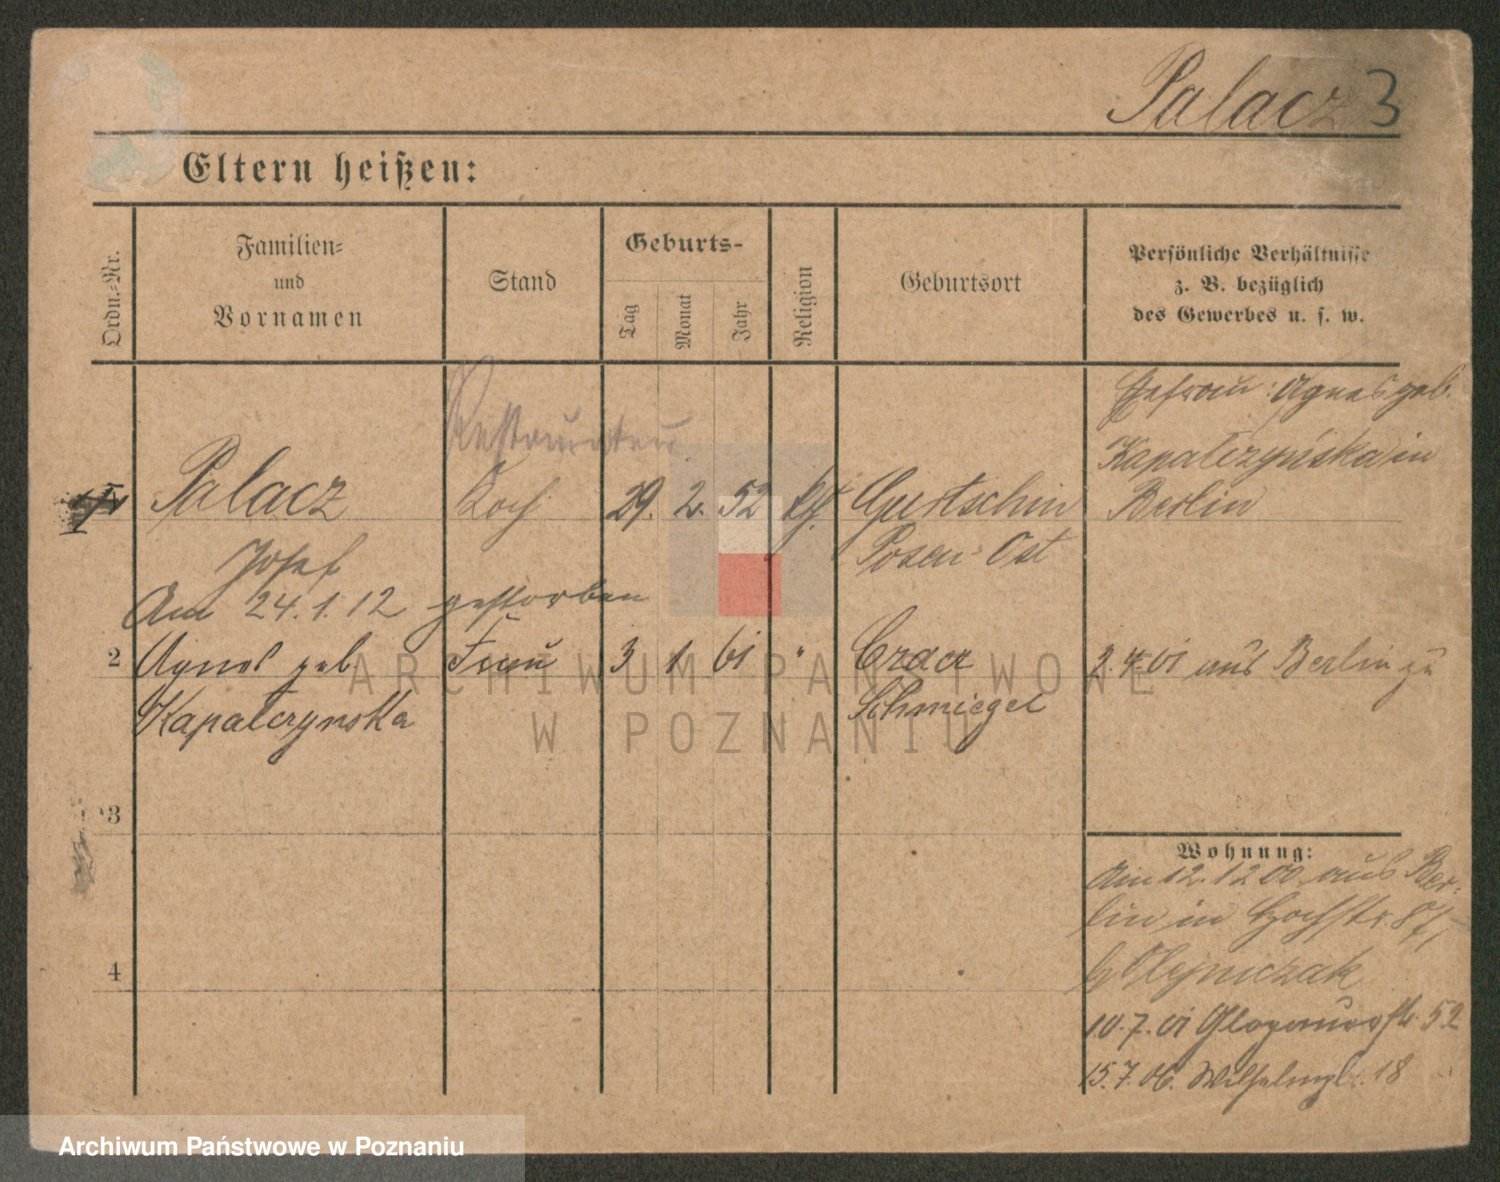 Palacz 3
Eltern heißen:
Ordn.-Nr.
Familien-
und
Vornamen
Stand
Geburts-
Tag
Monat
Jahr
Religion
Geburtsort
Persönliche Verhältnisse
z. B. bezüglich
des Gewerbes u. s. w.
Restaurateur
Ehefrau: Agnes geb.
Kapalczyńska in
Berlin
Palacz Koch 29. 2. 52 kth. Gurtschin
Josef Posen Ost
Am 24.1.12 gestorben
2 Agnes geb Frau 3 1. 61 " Czacz 2.4.01 aus Berlin zu
Kapalczynska Schmiegel
3
4
Wohnung:
Am 12.12 00 aus Ber-
lin in
b Olejniczak
10.7.01 Glogauerstr. 52
15.7.06. Wilhelmpl. 18
ARCHIWUM PAŃSTWOWE
W POZNANIU
Archiwum Państwowe w Poznaniu